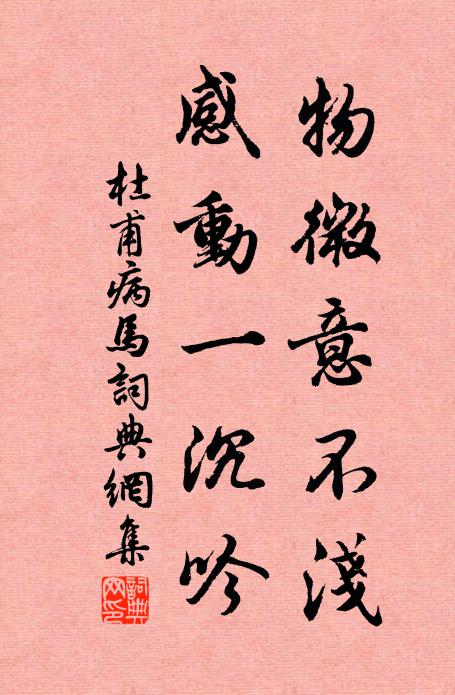 物微意不淺
感動一沉吟
杜甫病馬詞典網集
詞典網印